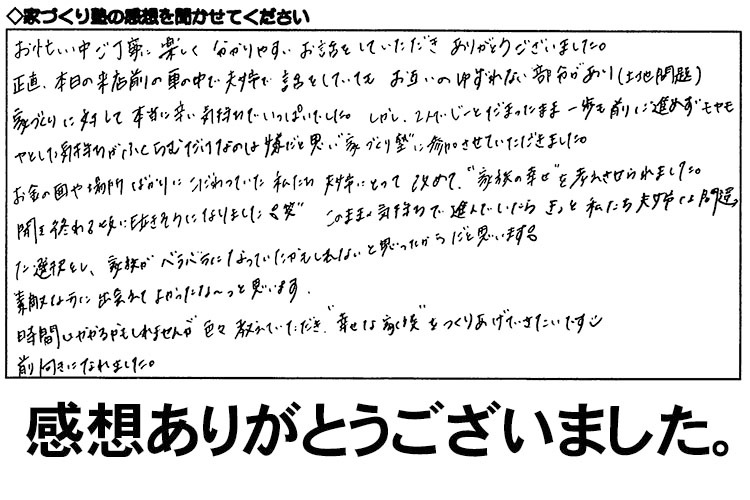 ◇家づくり塾の感想を聞かせてください
お忙しい中ご丁寧に楽しく分かりやすいお話をしていただきありがとうございました。
正直、本日の来店前の車の中で夫婦で話をしていてもお互いのゆずれない部分があり(土地問題)
家づくりに対して本当に辛い気持ちでいっぱいでした。しかし、2人でじーとだまったまま一歩も前にご進めずモヤモ
ヤとした気持ちがふくらむだけなのは嫌だと思い"家づくり塾"に参加させていただきました。
お金の面や場所ばかりにこだわっていた私たち夫婦にとって改めて、"家族の幸せ"を考えさせられました。
聞き終わる頃に泣きそうになりました"笑"このままの気持ちで進んでいたらきっと私たち夫婦は間違っ
た選択をし、家族がバラバラになっていたかもしれないと思ったからだと思います。
素敵な方に出会えてよかったな〜っと思います。
時間はかかるかもしれませんが色々教えていただき、"幸せな家族"をつくりあげていきたいです
前向きになれました。
感想ありがとうございました。